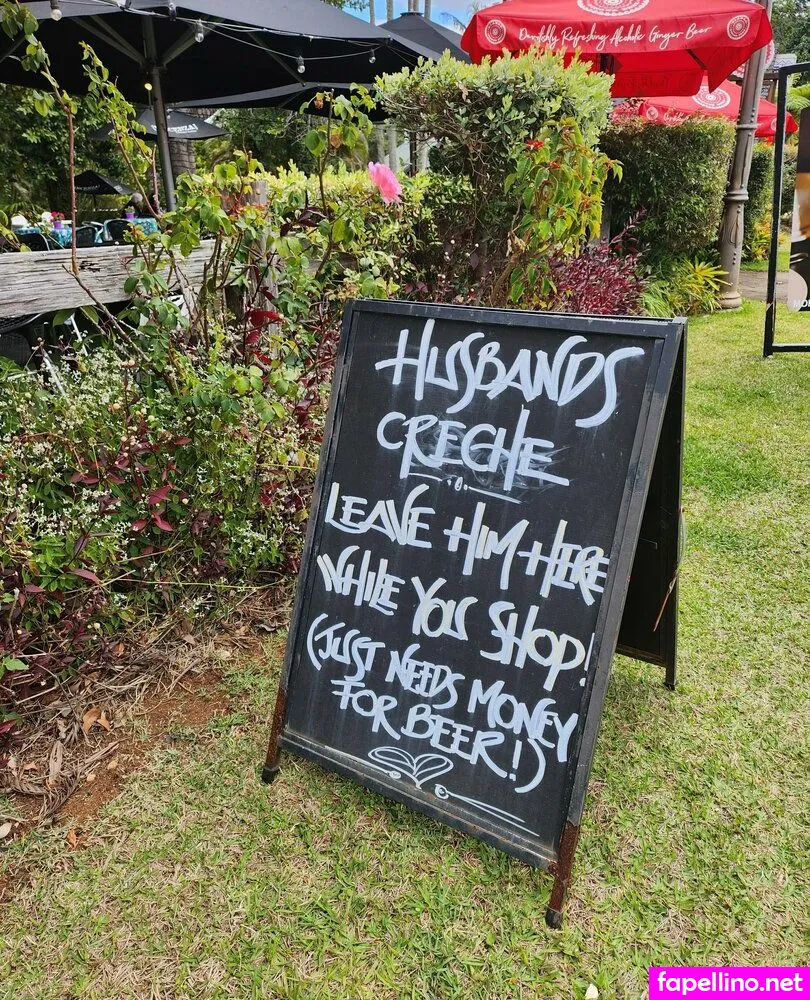 Dangerously Refreshing Alcoholic Ginger Beer
HUSBANDS
CRECHE
LEAVE HIM HERE
WHILE YOU SHOP!
(JUST NEEDS MONEY
FOR BEER!)
fapellino.net